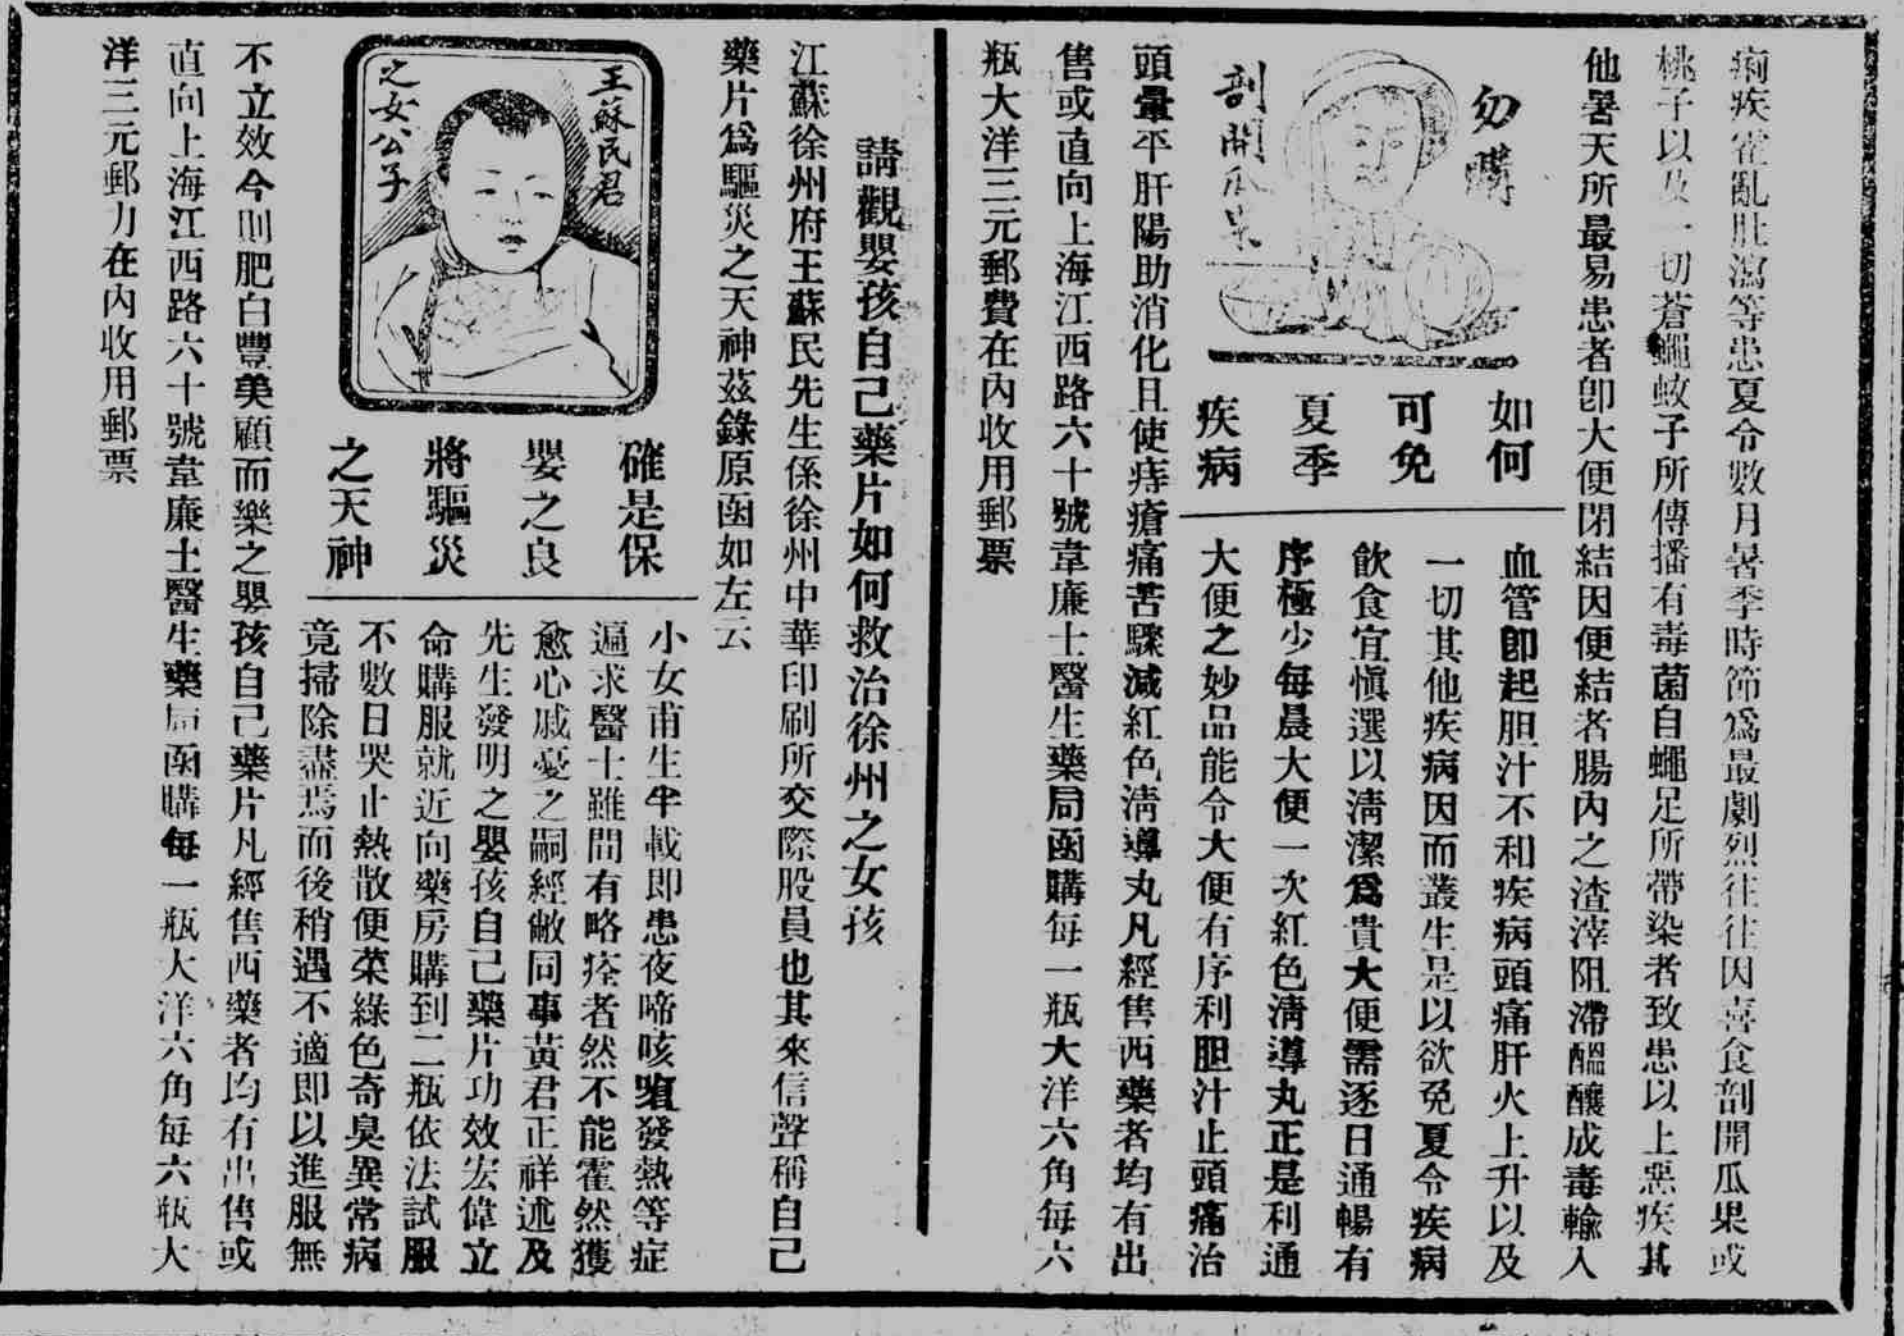 痢疾霍亂肚瀉等患夏令數月暑季時節爲最劇烈往往因喜食剖開瓜果或
桃子以及一切蒼蠅蚊子所傳播有毒菌自蠅足所帶染者致患以上惡疾其
他暑天所最易患者卽大便閉結因便結者腸內之渣滓阻滯醞釀成毒輸入
勿購
剖開瓜果
如何
可免
夏季
疾病
血管卽起胆汁不和疾病頭痛肝火上升以及
一切其他疾病因而叢生是以欲免夏令疾病
飲食宜愼選以淸潔爲貴大便需逐日通暢有
序極少每晨大便一次紅色淸導丸正是利通
大便之妙品能令大便有序利胆汁止頭痛治
頭暈平肝陽助消化且使痔瘡痛苦驟減紅色淸導丸凡經售西藥者均有出
售或直向上海江西路六十號韋廉士醫生藥局函購每一瓶大洋六角每六
瓶大洋三元郵費在內收用郵票
請觀嬰孩自己藥片如何救治徐州之女孩
江蘇徐州府王蘇民先生係徐州中華印刷所交際股員也其來信聲稱自己
藥片爲驅災之天神茲錄原函如左云
王蘇民君
之女公子
確是保
嬰之良
將驅災
之天神
小女甫生半載即患夜啼咳嗽發熱等症
遍求醫士雖間有略痊者然不能霍然獲
愈心戚憂之嗣經敝同事黃君正祥述及
先生發明之嬰孩自己藥片功效宏偉立
命購服就近向藥房購到二瓶依法試服
不數日哭止熱散便菜綠色奇臭異常病
竟掃除盡焉而後稍遇不適即以進服無
不立效今則肥白豐美顧而樂之嬰孩自己藥片凡經售西藥者均有出售或
直向上海江西路六十號韋廉士醫生藥局函購每一瓶大洋六角每六瓶大
洋三元郵力在內收用郵票